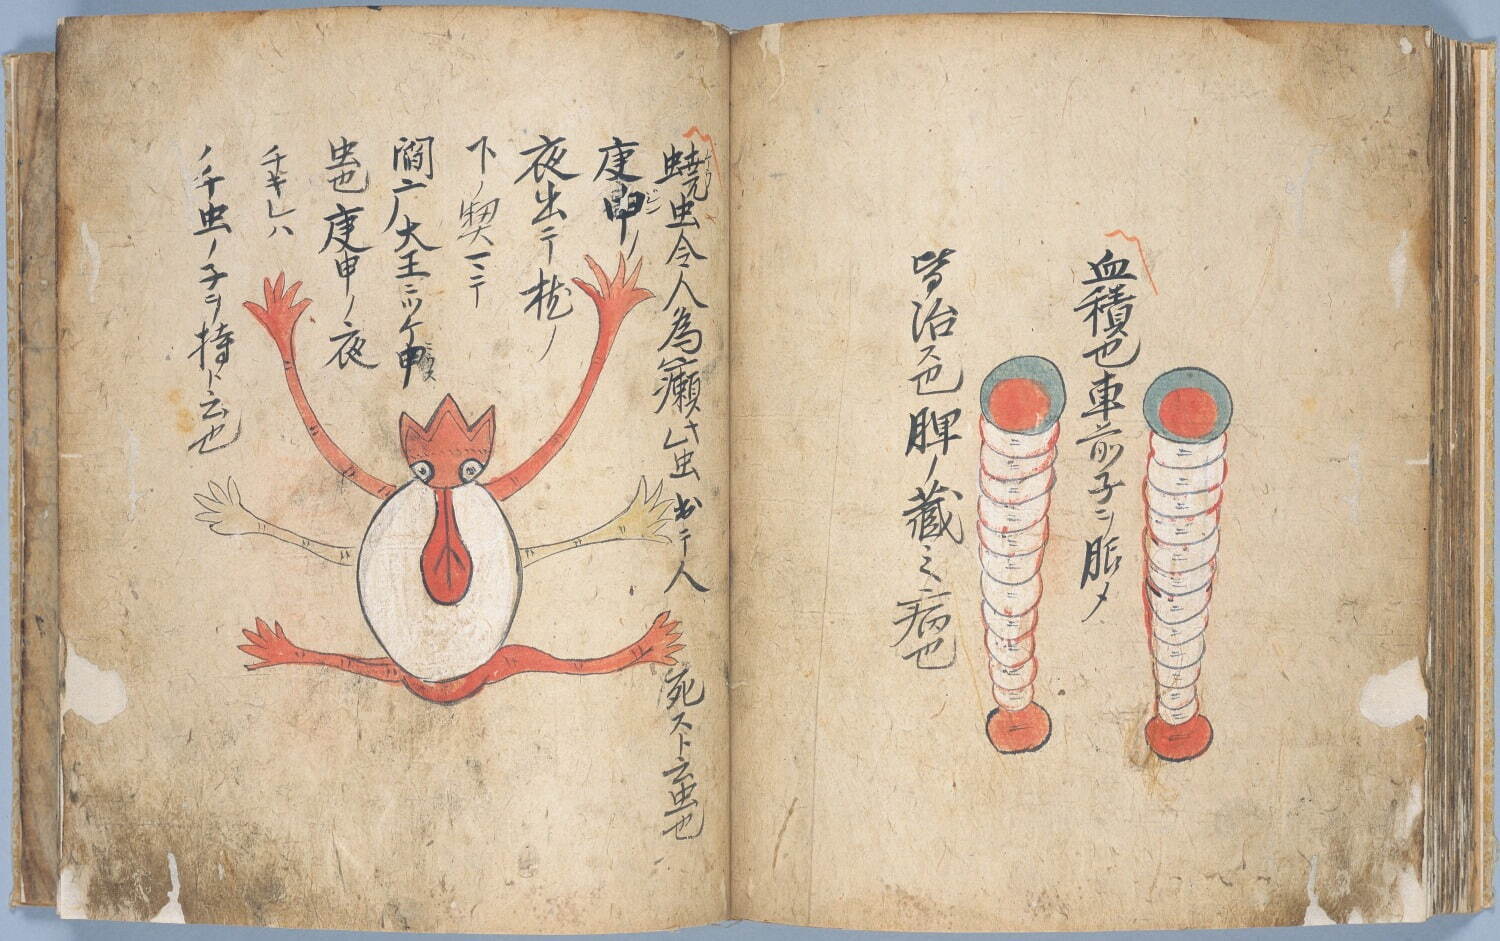 血積也車前子ヲ
皆治ス也脾ノ蔵之病也
蟯虫令人為癩 虫 出テ人死スト云虫也
庚申ノ
夜出テ ノ
下ノ契
閻广大王ニツケ申
虫也庚申ノ夜
チキレハ
ノチ虫ノ子ヲ持ト云也